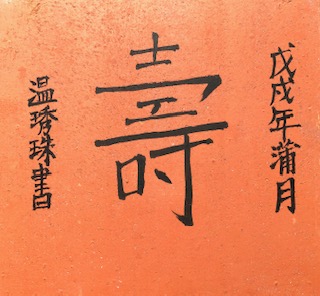 戊戌年蒲月
壽
温琇珠書